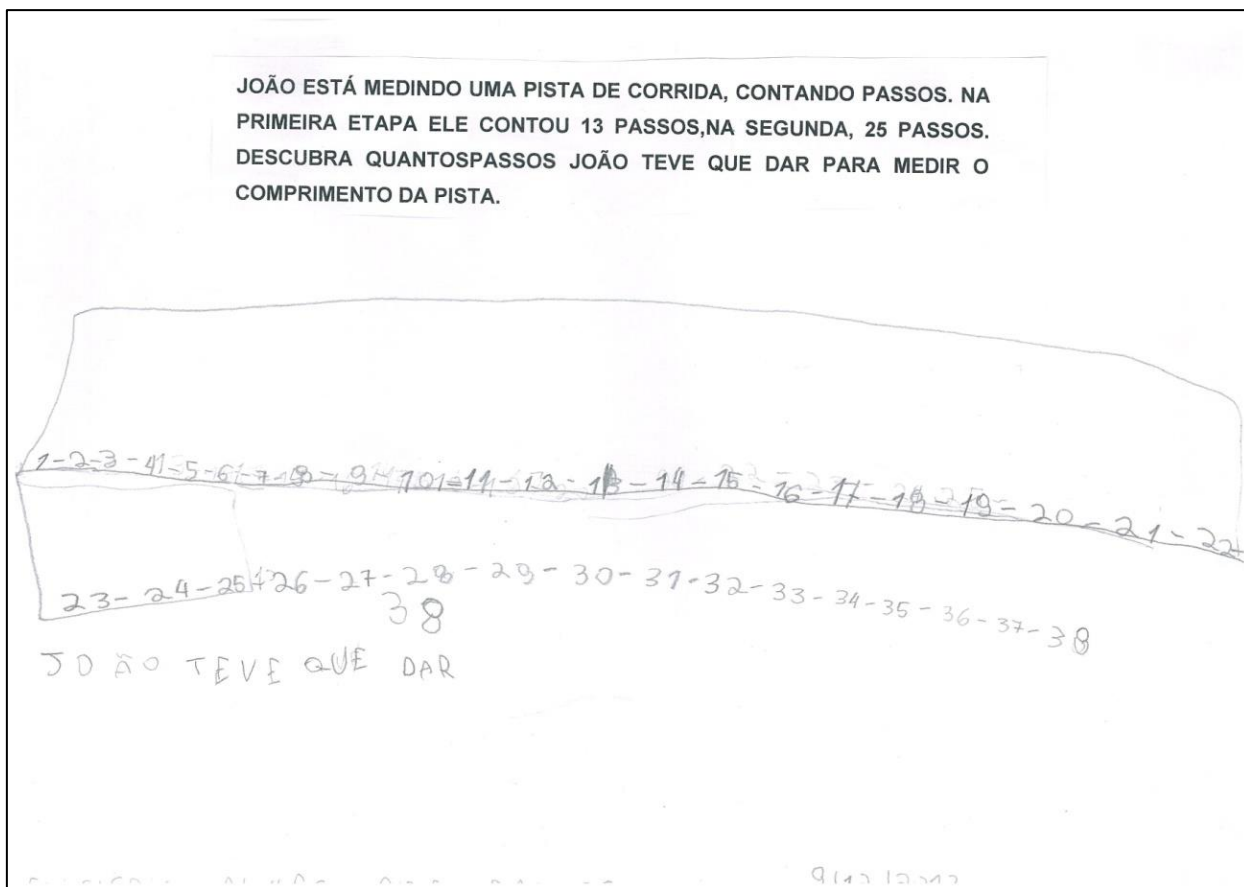 JOÃO ESTÁ MEDINDO UMA PISTA DE CORRIDA, CONTANDO PASSOS. NA
PRIMEIRA ETAPA ELE CONTOU 13 PASSOS,NA SEGUNDA, 25 PASSOS.
DESCUBRA QUANTOSPASSOS JOÃO TEVE QUE DAR PARA MEDIR O
COMPRIMENTO DA PISTA.
1-2-3-4-5-6-7-8-9-10-11-12-13-14-15-16-17-18-19-20-21-22-
23-24-25-26-27-28-29-30-31-32-33-34-35-36-37-38
38
JOÃO TEVE QUE DAR